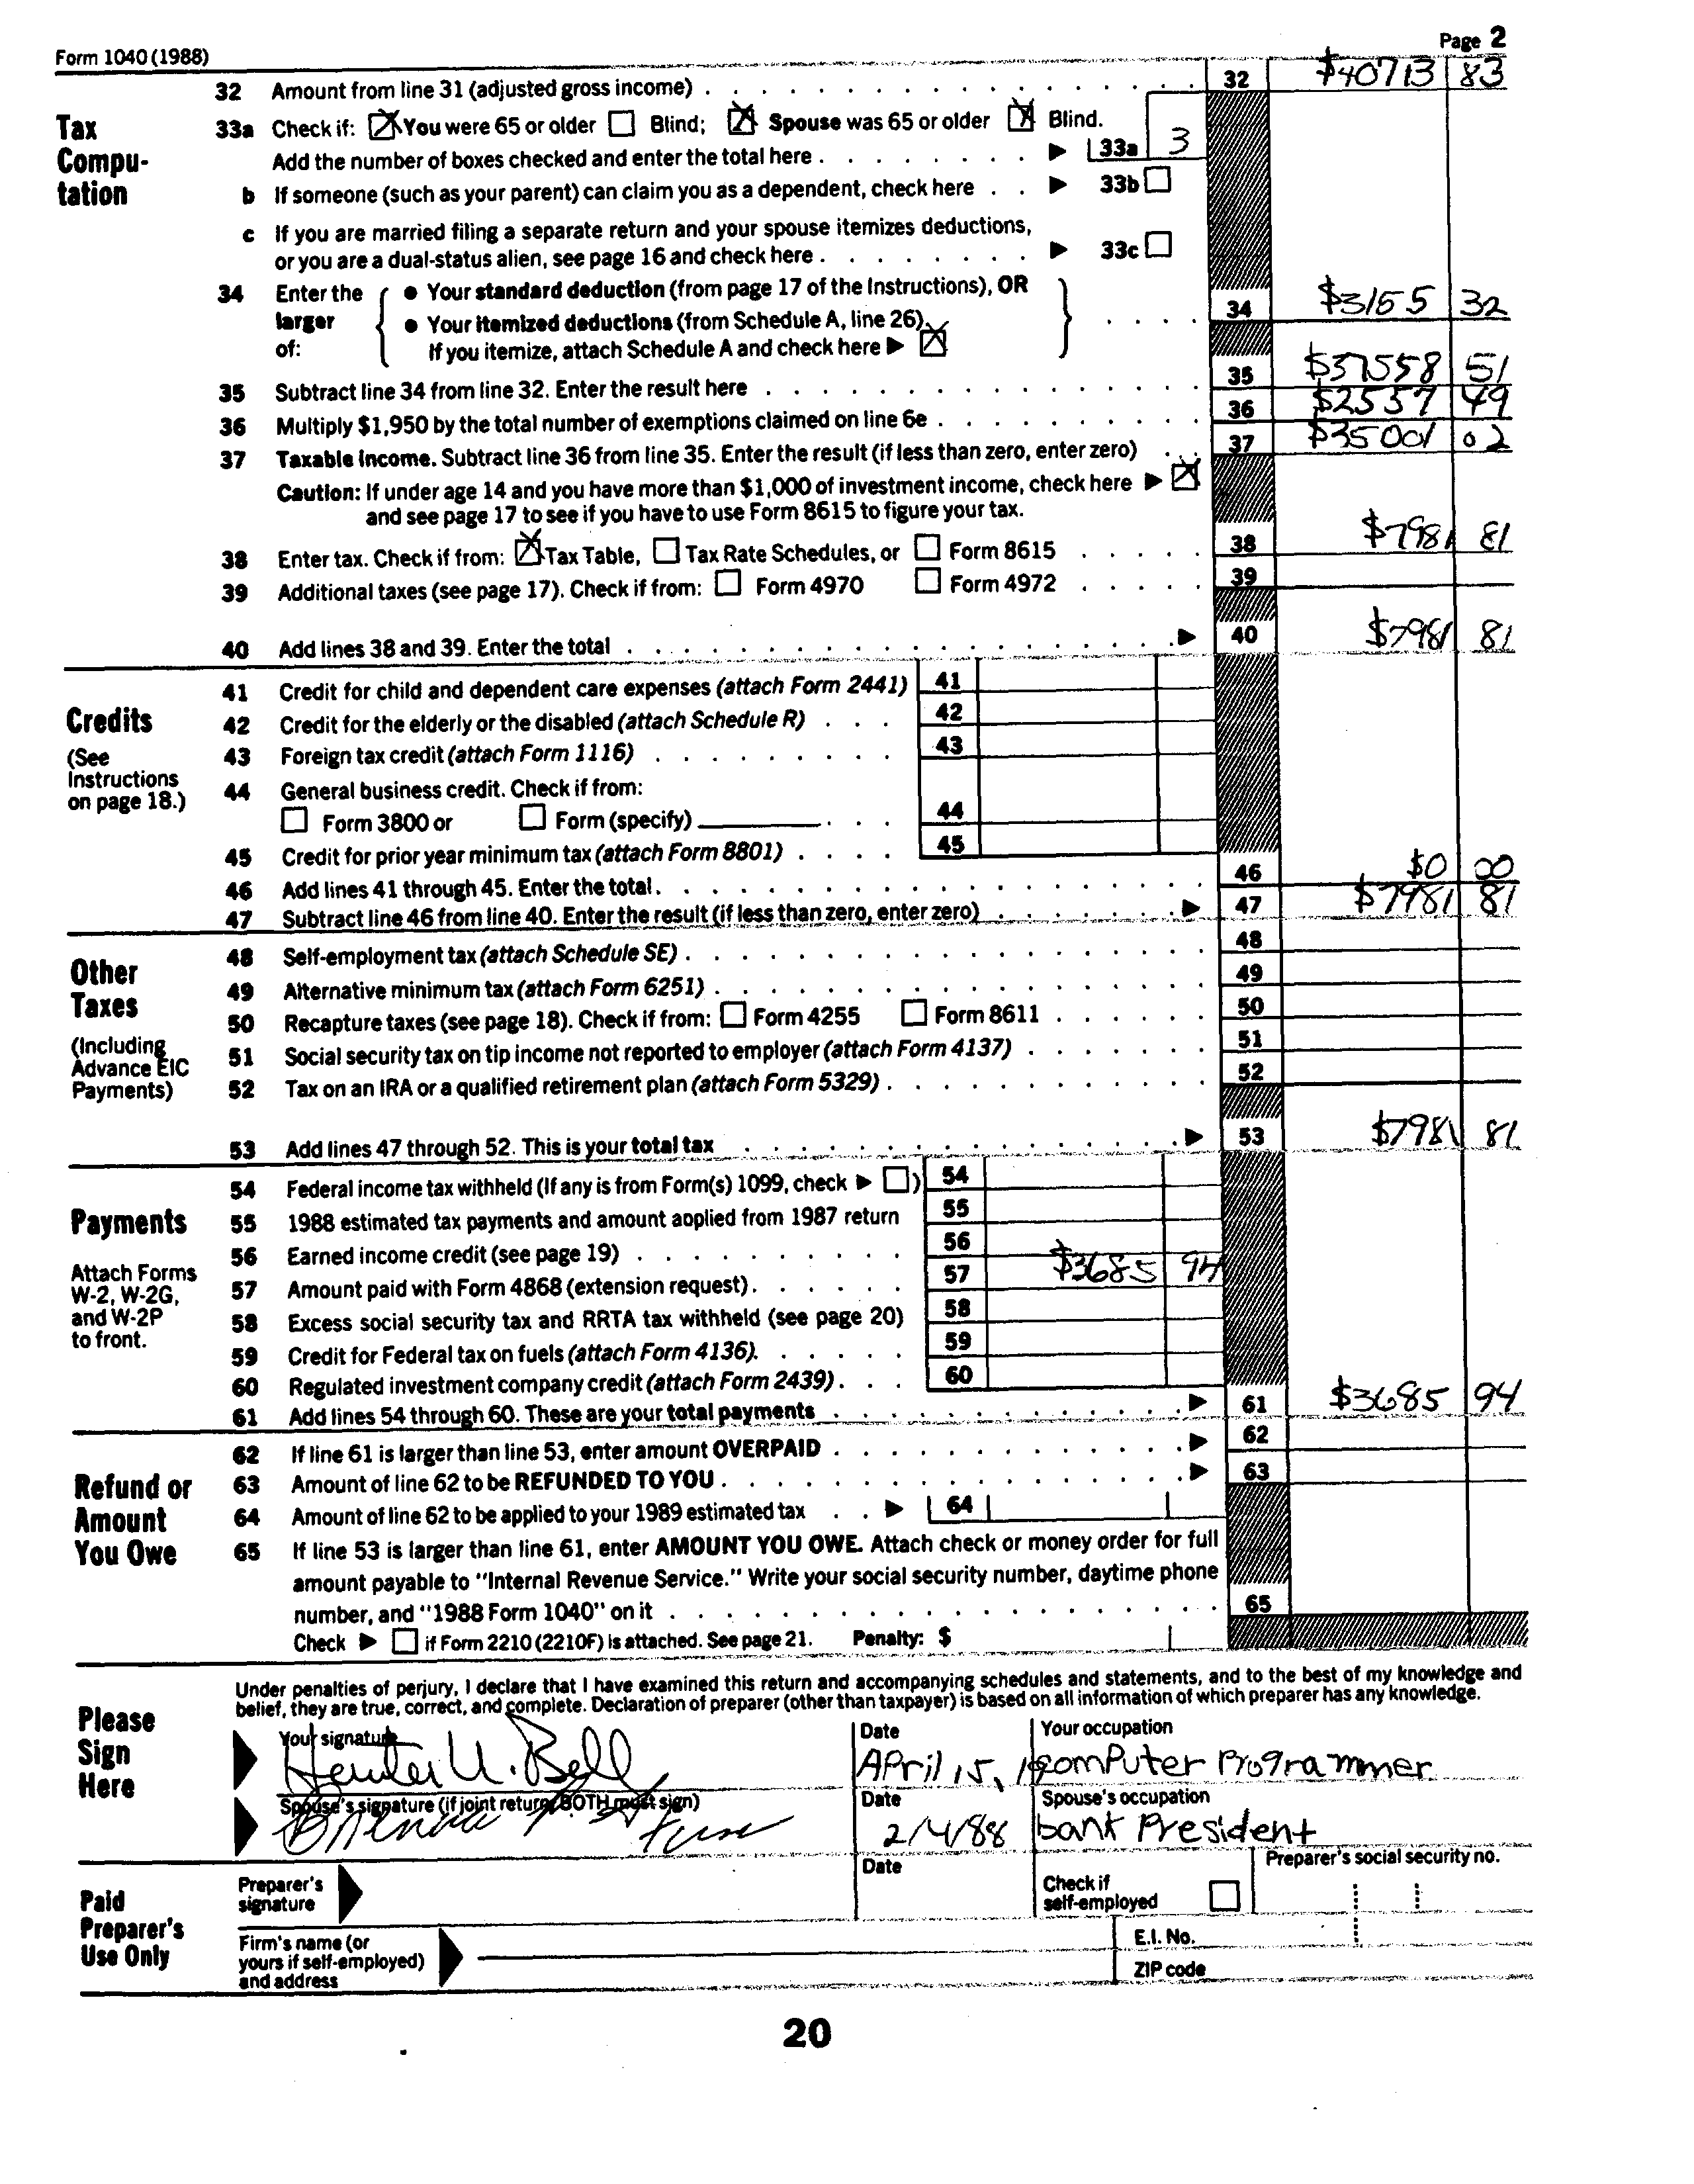 Form 1040 (1988)
Page 2
32 Amount from line 31 (adjusted gross income) 32 $40713 83
Tax Compu-tation
33a Check if: You were 65 or older Blind; Spouse was 65 or older Blind.
Add the number of boxes checked and enter the total here 33a 3
b If someone (such as your parent) can claim you as a dependent, check here 33b
c If you are married filing a separate return and your spouse itemizes deductions,
or you are a dual-status alien, see page 16 and check here 33c
34 Enter the larger of:
• Your standard deduction (from page 17 of the Instructions), OR
• Your itemized deductions (from Schedule A, line 26).
If you itemize, attach Schedule A and check here
34 $3155 32
35 Subtract line 34 from line 32. Enter the result here 35 $37558 51
36 Multiply $1,950 by the total number of exemptions claimed on line 6e 36 $2557 49
37 Taxable income. Subtract line 36 from line 35. Enter the result (if less than zero, enter zero) 37 $35001 02
Caution: If under age 14 and you have more than $1,000 of investment income, check here
and see page 17 to see if you have to use Form 8615 to figure your tax.
38 Enter tax. Check if from: Tax Table, Tax Rate Schedules, or Form 8615 38 $7981 81
39 Additional taxes (see page 17). Check if from: Form 4970 Form 4972 39
40 Add lines 38 and 39. Enter the total 40 $7981 81
Credits
(See Instructions on page 18.)
41 Credit for child and dependent care expenses (attach Form 2441) 41
42 Credit for the elderly or the disabled (attach Schedule R) 42
43 Foreign tax credit (attach Form 1116) 43
44 General business credit. Check if from:
Form 3800 or Form (specify) 44
45 Credit for prior year minimum tax (attach Form 8801) 45
46 Add lines 41 through 45. Enter the total. 46 $0 00
47 Subtract line 46 from line 40. Enter the result (if less than zero, enter zero) 47 $7981 81
Other Taxes
(Including Advance EIC Payments)
48 Self-employment tax (attach Schedule SE) 48
49 Alternative minimum tax (attach Form 6251) 49
50 Recapture taxes (see page 18). Check if from: Form 4255 Form 8611 50
51 Social security tax on tip income not reported to employer (attach Form 4137) 51
52 Tax on an IRA or a qualified retirement plan (attach Form 5329) 52
53 Add lines 47 through 52. This is your total tax 53 $7981 81
Payments
Attach Forms W-2, W-2G, and W-2P to front.
54 Federal income tax withheld (If any is from Form(s) 1099, check ) 54
55 1988 estimated tax payments and amount applied from 1987 return 55
56 Earned income credit (see page 19) 56
57 Amount paid with Form 4868 (extension request) 57 $3685 94
58 Excess social security tax and RRTA tax withheld (see page 20) 58
59 Credit for Federal tax on fuels (attach Form 4136). 59
60 Regulated investment company credit (attach Form 2439) 60
61 Add lines 54 through 60. These are your total payments 61 $3685 94
Refund or Amount You Owe
62 If line 61 is larger than line 53, enter amount OVERPAID 62
63 Amount of line 62 to be REFUNDED TO YOU 63
64 Amount of line 62 to be applied to your 1989 estimated tax 64
65 If line 53 is larger than line 61, enter AMOUNT YOU OWE. Attach check or money order for full
amount payable to "Internal Revenue Service." Write your social security number, daytime phone
number, and "1988 Form 1040" on it 65
Check if Form 2210 (2210F) is attached. See page 21. Penalty: $
Please Sign Here
Under penalties of perjury, I declare that I have examined this return and accompanying schedules and statements, and to the best of my knowledge and
belief, they are true, correct, and complete. Declaration of preparer (other than taxpayer) is based on all information of which preparer has any knowledge.
Your signature Date Your occupation
U. Bell April 15, computer programmer
Spouse's signature (if joint return, BOTH must sign) Date Spouse's occupation
2/4/88 bank President
Paid Preparer's Use Only
Preparer's signature Date Check if self-employed Preparer's social security no.
Firm's name (or yours if self-employed) and address
E.I. No.
ZIP code
20